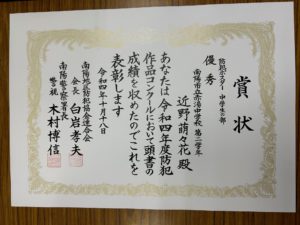 賞状
防犯ポスター中学生の部
優秀
南陽市立赤湯中学校 第二学年
近野萌々花殿
あなたは令和四年度防犯
作品コンクールにおいて頭書の
成績を収めたのでこれを
表彰します
令和四年十月十八日
南陽地区防犯協会連合会
会長 白岩孝夫
南陽警察署長
警視 木村博信